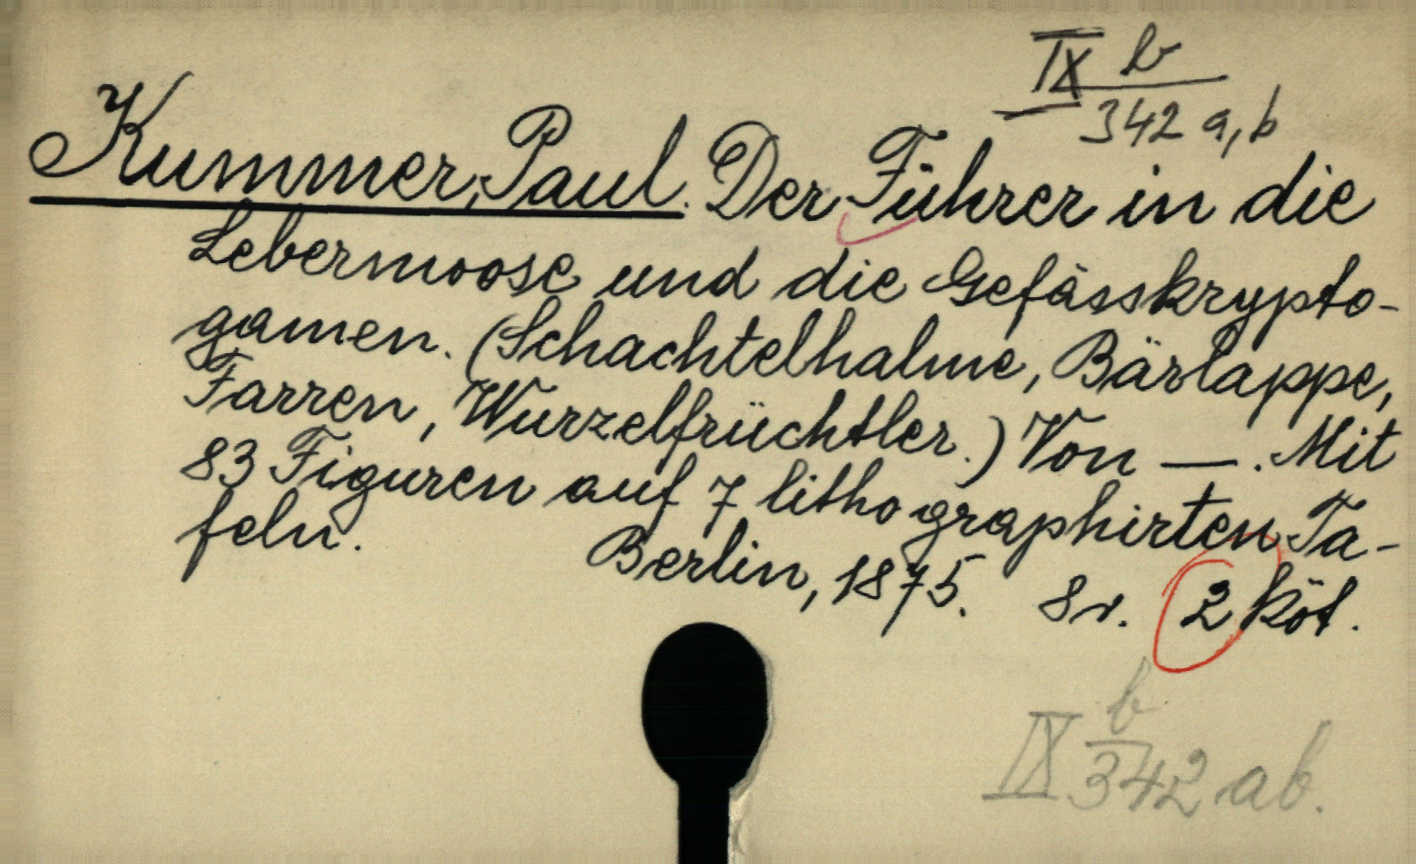 IX b
342 a, b
Kummer, Paul. Der Führer in die
Lebermoose und die Gefässkrypto-
gamen. (Schachtelhalme, Bärlappe,
Farren, Wurzelfrüchtler.) Von —. Mit
83 Figuren auf 7 lithographirten Ta-
feln.
Berlin, 1875. 8r. 2 köt.
IX b
342 ab.